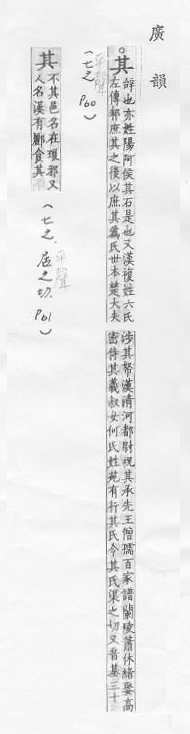 廣韻
。其
辭也亦姓陽阿侯其石是也又漢複姓六氏
左傳邾庶其之後以庶其爲氏世本楚大夫
涉其帑漢清河都尉祝其承先王僧孺百家譜蘭陵蕭休緒娶高
密侍其義叔女何氏姓苑有行其氏今其氏渠之切又音基三十
平聲
(七之 P60)
其
不其邑名在琅邪又
人名漢有酈食其
平聲
(七之.居之切. P61)